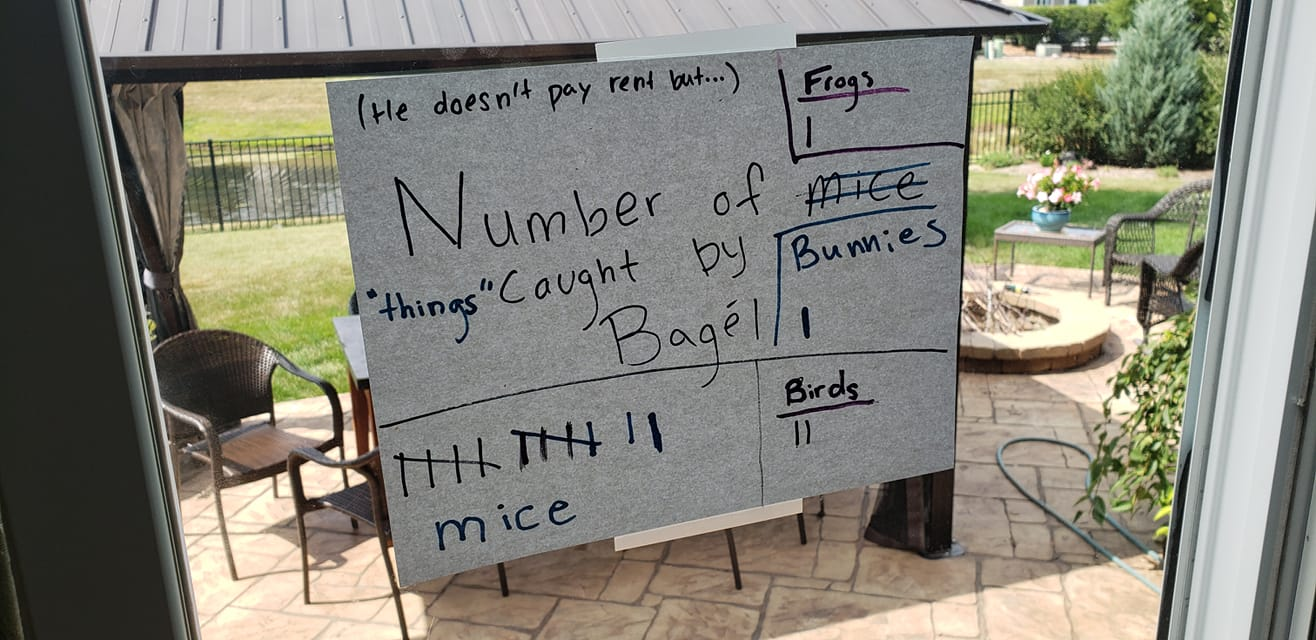 (He doesn't pay rent but...)
Frogs
I
Number of mice
"things" Caught by
Bagél
Bunnies
I
Birds
II
mice